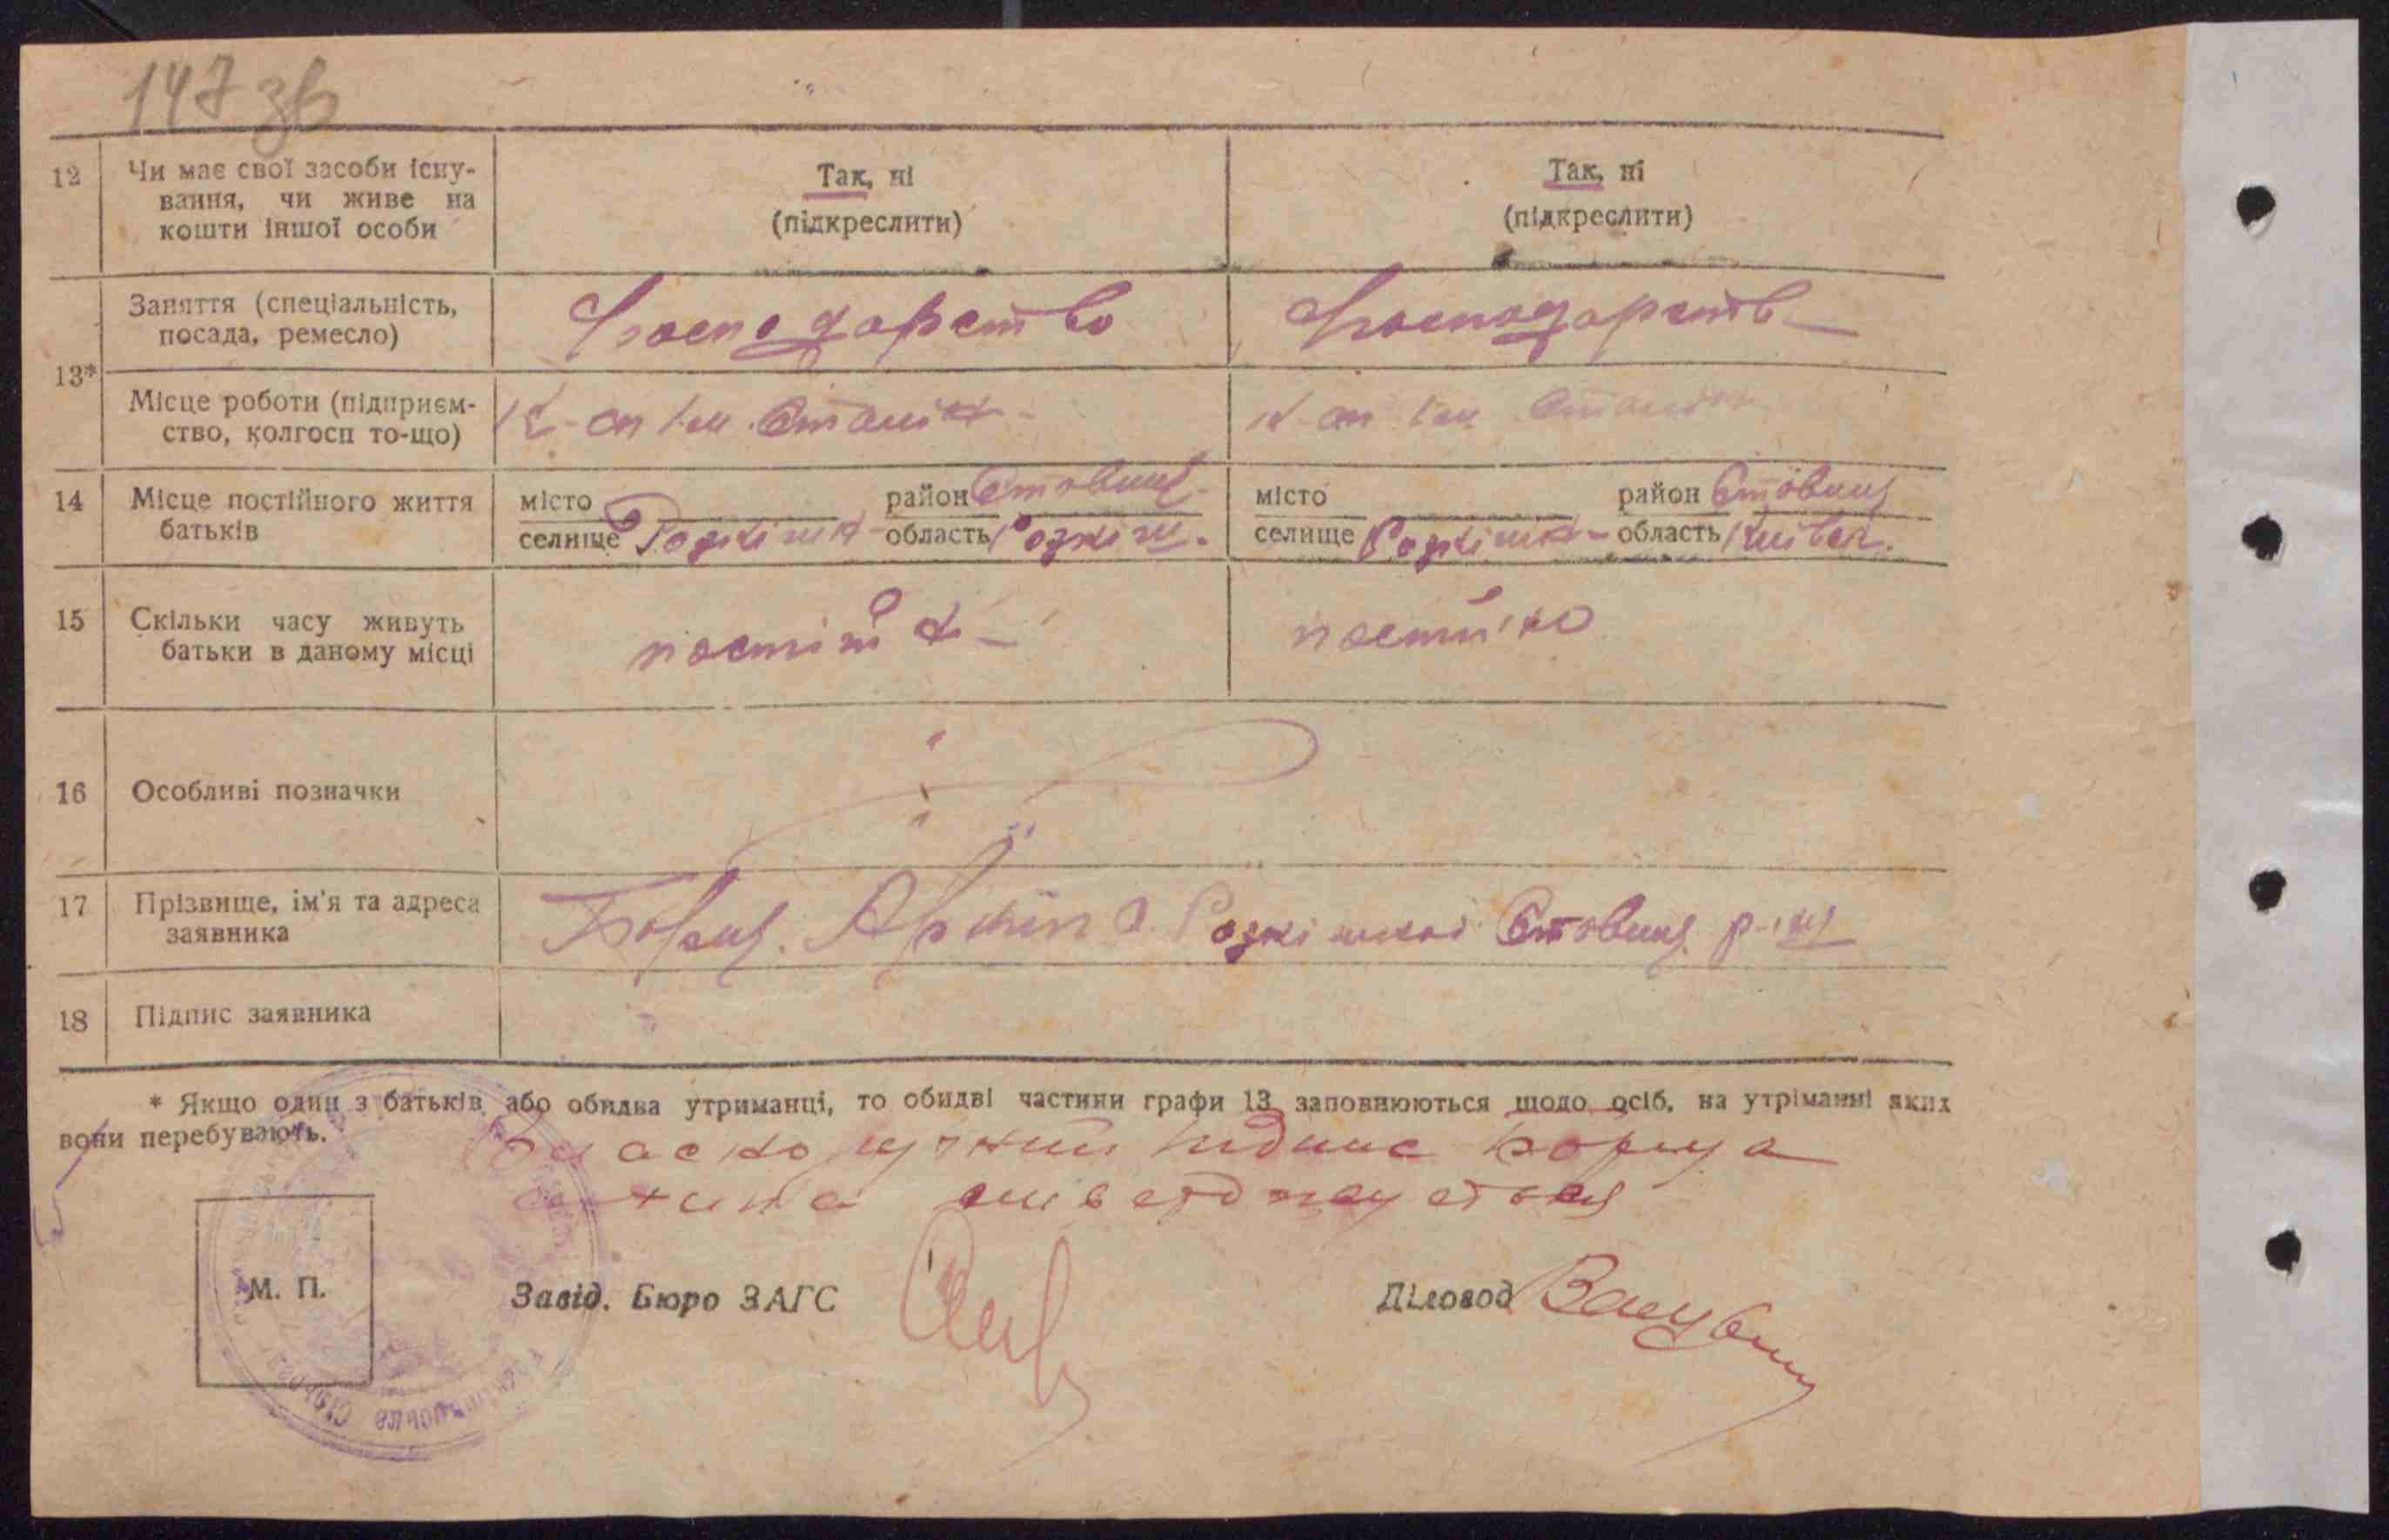 147 зв
12 Чи має свої засоби існу-
вання, чи живе на
кошти іншої особи
Так, ні
(підкреслити)
Так, ні
(підкреслити)
13*
Заняття (спеціальність,
посада, ремесло)
Господарство
Господарств
Місце роботи (підприєм-
ство, колгосп то-що)
14 Місце постійного життя
батьків
місто район Ставищ.
селище Розкішна область Розкіш.
місто район Ставищ
селище Розкішна область Київск.
15 Скільки часу живуть
батьки в даному місці
постійн
постійно
16 Особливі позначки
17 Прізвище, ім'я та адреса
заявника
Борщ. Архип с. Розкішної Ставищ. р-ну
18 Підпис заявника
* Якщо один з батьків або обидва утриманці, то обидві частини графи 13 заповнюються щодо осіб, на утріманні яких
вони перебувають.
Власно ручний підпис Борща
М. П.
Завід. Бюро ЗАГС
Діловод